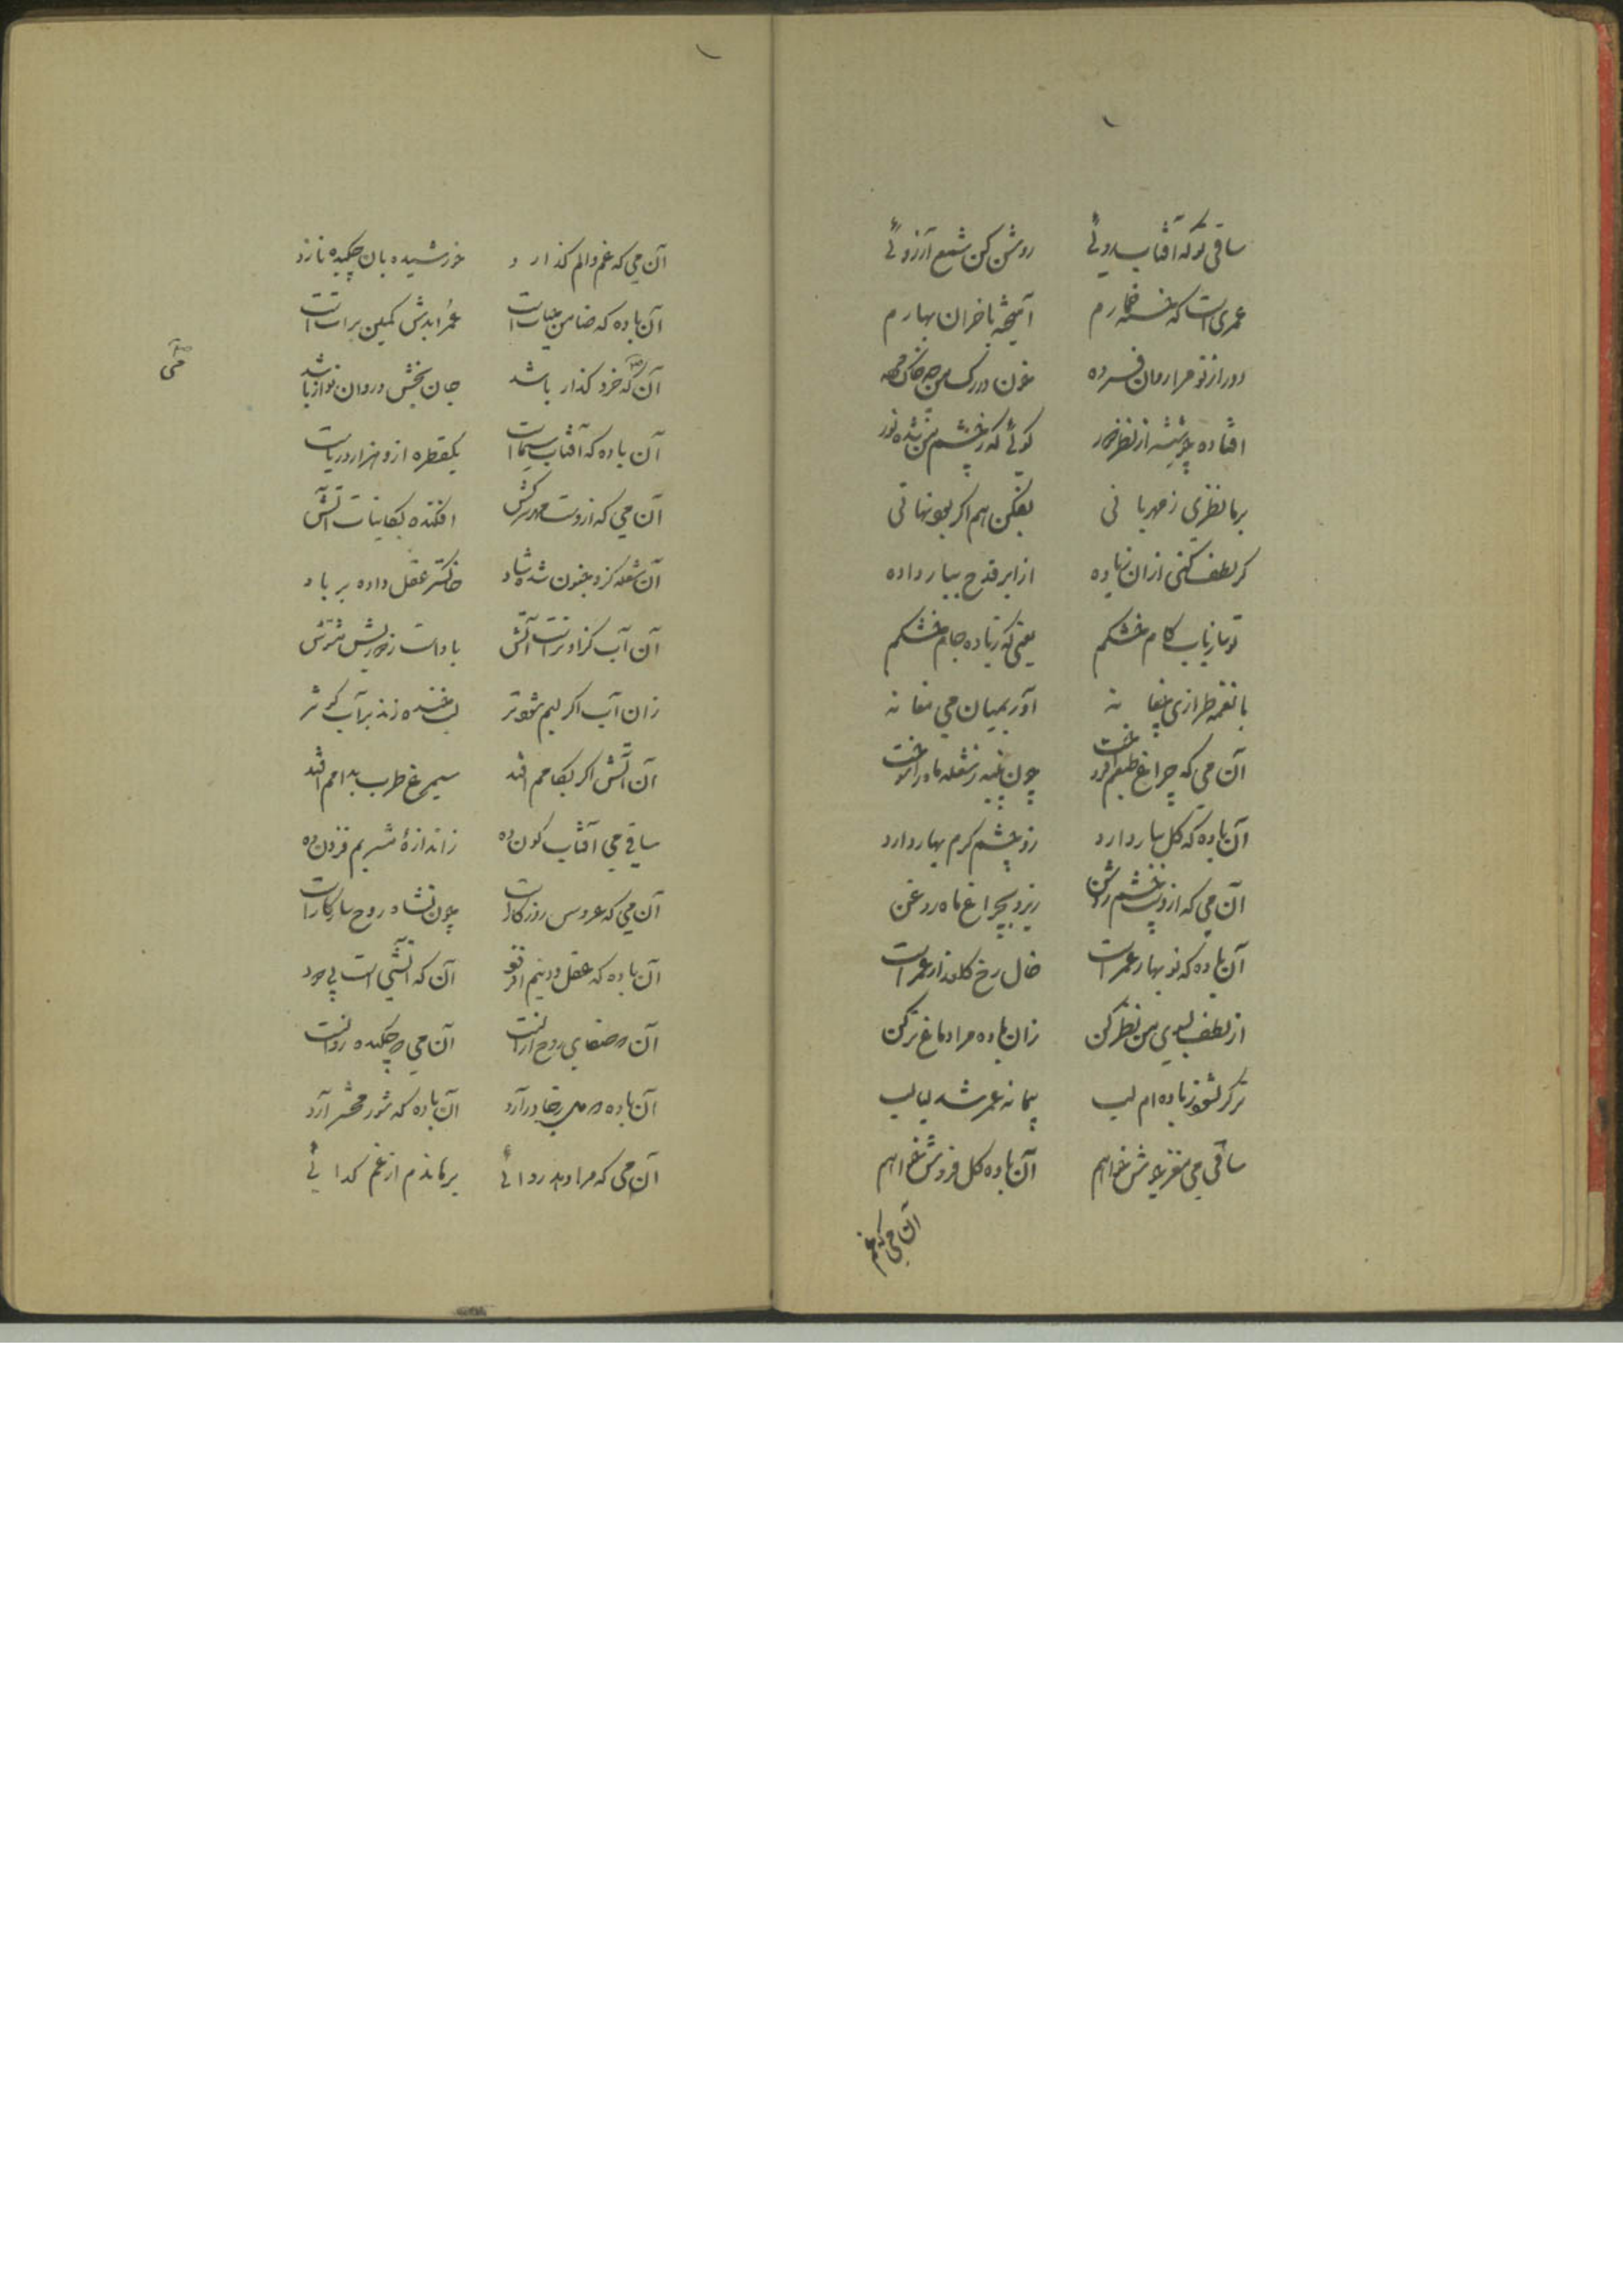 ساقی توئی که آفتاب روئی روشن کن شمع آرزوئی
عمری است که خسته خمارم آمیخته با خزان بهارم
دور از تو مرا روان فسرده خون در رگ من چو خاک مرده
افتاده چو شیشه از نظر دور گوئی که ز چشم من شده نور
بر ما نظری ز مهربانی بفکن هم اگر بود نهانی
گر لطف کنی از آن زیاده از ابر قدح ببار داده
تو ساز بآب کام خشکم یعنی که بباده جام خشکم
با نغمه طرازی مغانه آور بمیان می مغانه
آن می که چراغ طبعم افروخت چون پنبه ز شعله ماه را سوخت
آن باده که گل ببار دارد زو چشم کرم بهار دارد
آن می که ازوست چشم روشن ریزد بچراغ ماه روغن
آن باده که نوبهار عمر است خال رخ گلعذار عمر است
از لطف بسوی من نظر کن زان باده مرا دماغ تر کن
تر گر نشود ز باده ام لب پیمانه عمر شد لبالب
ساقی می مغز جوش خواهم آن باده گل فروش خواهم
آن می که غم
آن می که غم و الم گذارد خورشید بآن چکیده نازد
آن باده که ضامن حیات است عمر ابدش کمین برات است
آن که خرد گذار باشد جان بخش و روان نواز باشد
می
آن باده که آفتاب سیما است یکقطره ازو هزار دریاست
آن می که ازوست مهر سرکش افکنده بکاینات آتش
آن شعله کزو جنون شده شاد خاکستر عقل داده بر باد
آن آب کزاو تر است آتش باد است ز مشوش
زان آب اگر لبم شود تر لب خنده زند بر آب کوثر
آن آتش اگر بکامم افتد سیمرغ طرب بدامم افتد
ساقی می آفتاب گون ده ز اندازهٔ مشربم فزون ده
آن می که عروس روزگار است چون نشاه روح سازگار است
آن باده که عقل و دینم افزود آن که آتشی است بی دود
آن می چو چکیده روانست
آن باده در آرد آن باده که شور محشر آرد
آن می که مرا دهد روائی برهاندم از غم گدائی